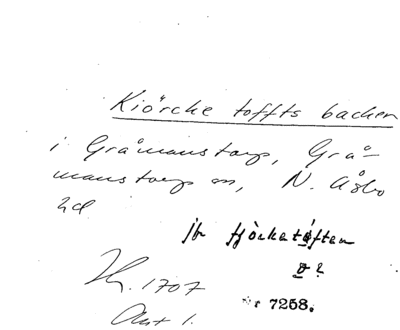 Kiörcke toffts backen
i Gråmanstorp, Grå-
manstorp sn, N. Åsbo
hd
jfr
? 
1707
Akt 1.
nr 7258.